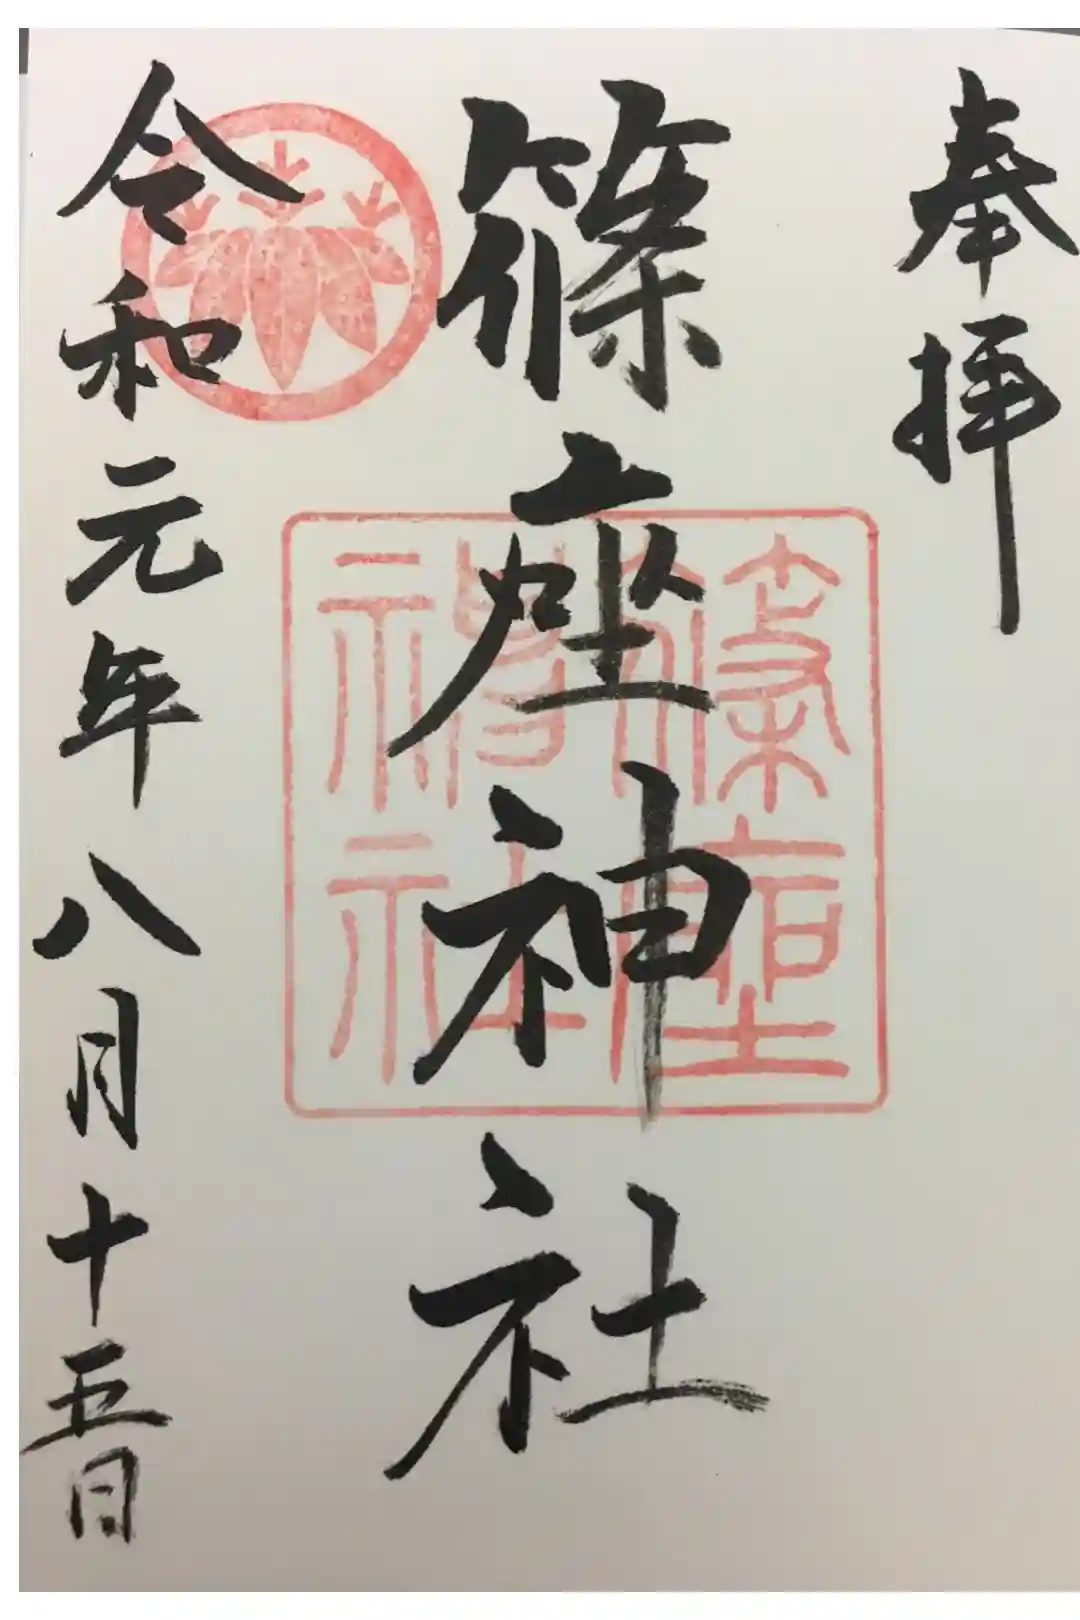 奉拝
篠座神社
篠座神社
令和元年八月十五日